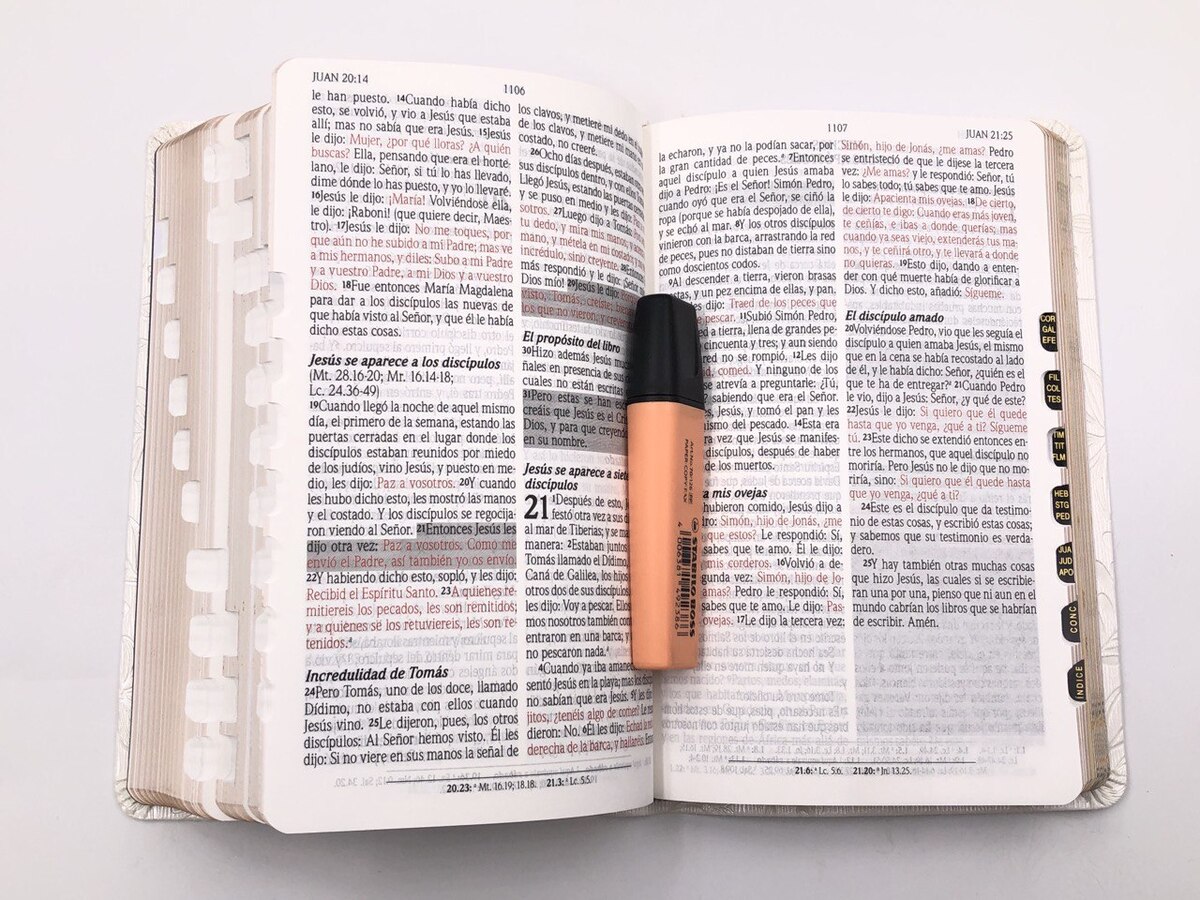 JUAN 20:14
1106
le han puesto. 14Cuando había dicho
esto, se volvió, y vio a Jesús que estaba
allí; mas no sabía que era Jesús. 15Jesús
le dijo: Mujer, ¿por qué lloras? ¿A quién
buscas? Ella, pensando que era el horte-
lano, le dijo: Señor, si tú lo has llevado,
dime dónde lo has puesto, y yo lo llevaré.
16Jesús le dijo: ¡María! Volviéndose ella,
le dijo: ¡Raboni! (que quiere decir, Maes-
tro). 17Jesús le dijo: No me toques, por-
que aún no he subido a mi Padre; mas ve
a mis hermanos, y diles: Subo a mi Padre
y a vuestro Padre, a mi Dios y a vuestro
Dios. 18Fue entonces María Magdalena
para dar a los discípulos las nuevas de
que había visto al Señor, y que él le había
dicho estas cosas.
Jesús se aparece a los discípulos
(Mt. 28.16-20; Mr. 16.14-18;
Lc. 24.36-49)
19Cuando llegó la noche de aquel mismo
día, el primero de la semana, estando las
puertas cerradas en el lugar donde los
discípulos estaban reunidos por miedo
de los judíos, vino Jesús, y puesto en me-
dio, les dijo: Paz a vosotros. 20Y cuando
les hubo dicho esto, les mostró las manos
y el costado. Y los discípulos se regocija-
ron viendo al Señor. 21Entonces Jesús les
dijo otra vez: Paz a vosotros. Como me
envió el Padre, así también yo os envío.
22Y habiendo dicho esto, sopló, y les dijo:
Recibid el Espíritu Santo. 23A quienes re-
mitiereis los pecados, les son remitidos;
y a quienes se los retuviereis, les son re-
tenidos.a
Incredulidad de Tomás
24Pero Tomás, uno de los doce, llamado
Dídimo, no estaba con ellos cuando
Jesús vino. 25Le dijeron, pues, los otros
discípulos: Al Señor hemos visto. Él les
dijo: Si no viere en sus manos la señal de
los clavos, y metiere mi dedo en el
de los clavos, y metiere mi mano
costado, no creeré.
26Ocho días después, estaban
sus discípulos dentro, y con ellos
Llegó Jesús, estando las puertas
y se puso en medio y les dijo: Paz
sotros. 27Luego dijo a Tomás:
tu dedo, y mira mis manos; y
mano, y métela en mi costado; y
incrédulo, sino creyente. 28Entonces
más respondió y le dijo: ¡Señor
Dios mío! 29Jesús le dijo:
visto, Tomás, creíste;
los que no vieron, y creyeron
El propósito del libro
30Hizo además Jesús
ñales en presencia de sus
cuales no están escritas
31Pero estas se han
creáis que Jesús es el
Dios, y para que creyendo
en su nombre.
Jesús se aparece a siete
discípulos
21 1Después de esto,
festó otra vez a sus
al mar de Tiberias; y se
manera: 2Estaban juntos
Tomás llamado el Dídimo,
Caná de Galilea, los hijos
otros dos de sus discípulos
les dijo: Voy a pescar. Ellos
mos nosotros también con
entraron en una barca; y
no pescaron nada.a
4Cuando ya iba amane
sentó Jesús en la playa; mas los
no sabían que era Jesús. 5Y les
jitos, ¿tenéis algo de comer? Le
dieron: No. 6Él les dijo: Echad la red
derecha de la barca, y hallaréis.
20.23: a Mt. 16.19; 18.18. 21.3: a Lc. 5.5.
1107
JUAN 21:25
la echaron, y ya no la podían sacar, por
la gran cantidad de peces.b 7Entonces
aquel discípulo a quien Jesús amaba
dijo a Pedro: ¡Es el Señor! Simón Pedro,
cuando oyó que era el Señor, se ciñó la
ropa (porque se había despojado de ella),
y se echó al mar. 8Y los otros discípulos
vinieron con la barca, arrastrando la red
de peces, pues no distaban de tierra sino
como doscientos codos.
9Al descender a tierra, vieron brasas
y un pez encima de ellas, y pan.
les dijo: Traed de los peces que
pescar. 11Subió Simón Pedro,
a tierra, llena de grandes pe-
cincuenta y tres; y aun siendo
red no se rompió. 12Les dijo
comed. Y ninguno de los
se atrevía a preguntarle: ¿Tú,
sabiendo que era el Señor.
Jesús, y tomó el pan y les
mismo del pescado. 14Esta era
vez que Jesús se manifes-
discípulos, después de haber
de los muertos.
mis ovejas
hubieron comido, Jesús dijo a
Simón, hijo de Jonás, ¿me
que estos? Le respondió: Sí,
sabes que te amo. Él le dijo:
mis corderos. 16Volvió a de-
gunda vez: Simón, hijo de Jo-
amas? Pedro le respondió: Sí,
sabes que te amo. Le dijo: Pas-
ovejas. 17Le dijo la tercera vez:
Simón, hijo de Jonás, ¿me amas? Pedro
se entristeció de que le dijese la tercera
vez: ¿Me amas? y le respondió: Señor, tú
lo sabes todo; tú sabes que te amo. Jesús
le dijo: Apacienta mis ovejas. 18De cierto,
de cierto te digo: Cuando eras más joven,
te ceñías, e ibas a donde querías; mas
cuando ya seas viejo, extenderás tus ma-
nos, y te ceñirá otro, y te llevará a donde
no quieras. 19Esto dijo, dando a enten-
der con qué muerte había de glorificar a
Dios. Y dicho esto, añadió: Sígueme.
El discípulo amado
20Volviéndose Pedro, vio que les seguía el
discípulo a quien amaba Jesús, el mismo
que en la cena se había recostado al lado
de él, y le había dicho: Señor, ¿quién es el
que te ha de entregar?b 21Cuando Pedro
le vio, dijo a Jesús: Señor, ¿y qué de este?
22Jesús le dijo: Si quiero que él quede
hasta que yo venga, ¿qué a ti? Sígueme
tú. 23Este dicho se extendió entonces en-
tre los hermanos, que aquel discípulo no
moriría. Pero Jesús no le dijo que no mo-
riría, sino: Si quiero que él quede hasta
que yo venga, ¿qué a ti?
24Este es el discípulo que da testimo-
nio de estas cosas, y escribió estas cosas;
y sabemos que su testimonio es verda-
dero.
25Y hay también otras muchas cosas
que hizo Jesús, las cuales si se escribie-
ran una por una, pienso que ni aun en el
mundo cabrían los libros que se habrían
de escribir. Amén.
21.6: a Lc. 5.6. 21.20: a Jn. 13.25.
STABILO BOSS
COR
GÁL
EFE
FIL
COL
TES
TIM
TIT
FLM
HEB
STG
PED
JUA
JUD
APO
CONC
ÍNDICE